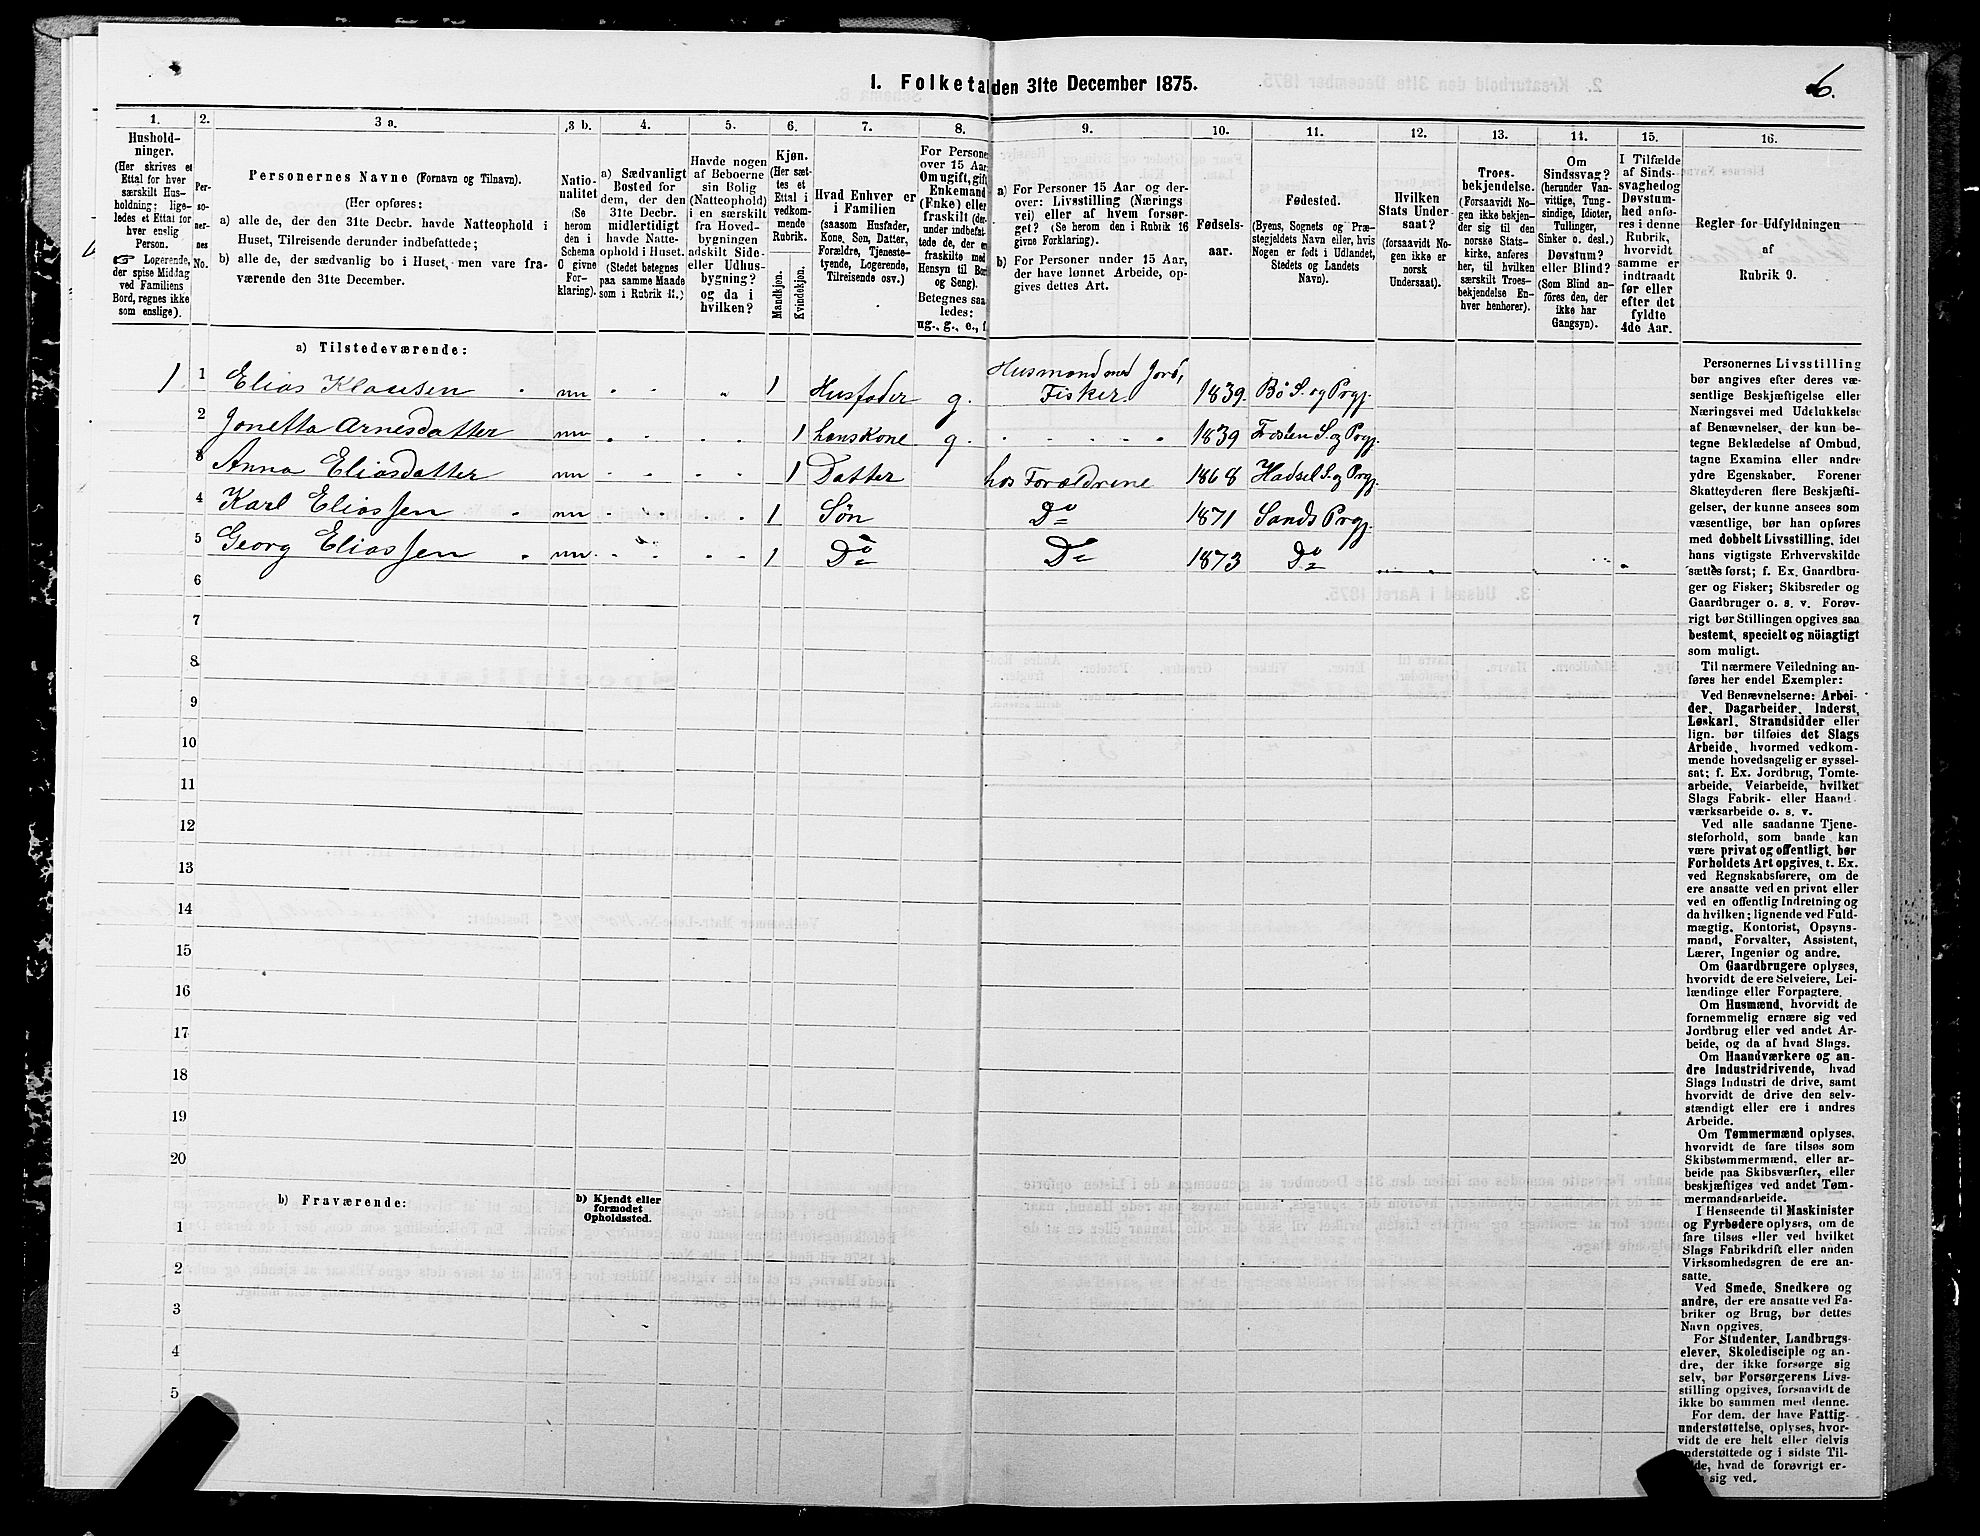 I. Folketal den 31te December 1875.
6.
1.
Hushold-
ninger.
(Her skrives et
Ettal for hver
særskilt Hus-
holdning; lige-
ledes et Ettal for
hver enslig
Person.
☞ Logerende,
der spise Middag
ved Familiens
Bord, regnes ikke
som enslige).
2.
Per-
so-
ner-
nes
No.
3 a.
Personernes Navne (Fornavn og Tilnavn).
(Her opføres:
a) alle de, der den 31te Decbr. havde Natteophold i
Huset, Tilreisende derunder indbefattede;
b) alle de, der sædvanlig bo i Huset, men vare fra-
værende den 31te December.
3 b.
Natio-
nalitet
(Se
herom
den i
Schema
C givne
For-
klaring).
4.
a) Sædvanligt
Bosted for
dem, der den
31te Decbr.
midlertidigt
havde Natte-
ophold i Huset.
(Stedet betegnes
paa samme Maade
som i Rubrik 11.)
5.
Havde nogen
af Beboerne
sin Bolig
(Natteophold)
i en særskilt
fra Hoved-
bygningen
adskilt Side-
eller Udhus-
bygning?
og da i
hvilken?
6.
Kjøn.
(Her sæt-
tes et
Ettal i
vedkom-
mende
Rubrik.
Mandkjøn.
Kvindekjøn.
7.
Hvad Enhver er
i Familien
(saasom Husfader,
Kone, Søn, Datter,
Forældre, Tjeneste-
tyende, Logerende,
Tilreisende osv.)
8.
For Persone
over 15 Aar
Om ugift, gift
Enkemand
(Enke) eller
fraskilt (der-
under indbefat-
tede de, der er
fraskilte med
Hensyn til Bor
og Seng).
Betegnes saa-
ledes:
ug., g., e., f.
9.
a) For Personer 15 Aar og der-
over: Livsstilling (Nærings-
vei) eller af hvem forsør-
get? (Se herom den i Rubrik 16
givne Forklaring).
b) For Personer under 15 Aar,
der have lønnet Arbeide, op-
gives dettes Art.
10.
Fødsels-
aar.
11.
Fødested.
(Byens, Sognets og Præ-
stegjeldets Navn eller, hvis
Nogen er født i Udlandet,
Stedets og Landets
Navn).
12.
Hvilken
Stats Under-
saat?
(forsaavidt No-
gen ikke er
norsk
Undersaat).
13.
Troes-
bekjendelse.
(Forsaavidt No-
gen ikke bekjen-
der sig til den
norske Stats-
kirke, anføres
her, til hvilken
særskilt Troes-
bekjendelse En-
hver henhører).
14.
Om
Sindssvag?
(herunder Van-
vittige, Tung-
sindige, Idioter,
Tullinger,
Sinker o. desl.)
Døvstum?
eller Blind?
(Som Blind an-
føres den, der
ikke har
Gangsyn).
15.
I Tilfælde
af Sinds-
svaghed og
Døvstum-
hed anfø-
res i denne
Rubrik,
hvorvidt
samme er
indtraadt
før eller
efter det
fyldte
4de Aar.
16.
Regler for Udfyldningen
af
Rubrik 9.
a) Tilstedeværende:
1 1 Elias Klausen nn 1 Husfader g. Husmand med Jord, Fisker. 1839. Bø S. og Prgj.
2 Jonetta Arnesdatter nn 1 hans Kone g. 1839 S. og Prgj.
3 Anna Eliasdatter nn 1 Datter hos Forældrene 1868 Hadsel S. og Prgj.
4 Karl Eliassen nn 1 Søn Do 1871 Sands Prgj.
5 Georg Eliassen nn 1 Do Do 1873 Do
6
7
8
9
10
11
12
13
14
15
16
17
18
19
20
b) Fraværende:
b) Kjendt eller
formodet
Opholdssted.
1
2
3
4
5
Personernes Livsstilling
bør angives efter deres væ-
sentlige Beskjæftigelse eller
Næringsvei med Udelukkelse
af Benævnelser, der kun be-
tegne Beklædelse af Ombud,
tagne Examina eller andre
ydre Egenskaber. Forener
Skatteyderen flere Beskjæfti-
gelser, der kunne ansees som
væsentlige, bør han opføres
med dobbelt Livsstilling, idet
hans vigtigste Erhvervskilde
sættes først; f. Ex. Gaardbru-
ger og Fisker; Skibsreder og
Gaardbruger o. s. v. Forøv-
rigt bør Stillingen opgives saa
bestemt, specielt og nöiagtigt
som muligt.
Til nærmere Veiledning an-
føres her endel Exempler:
Ved Benævnelserne: Arbei-
der, Dagarbeider, Inderst,
Løskarl, Strandsidder eller
lign. bør tilføies det Slags
Arbeide, hvormed vedkom-
mende hovedsagelig er syssel-
sat; f. Ex. Jordbrug, Tomte-
arbeide, Veiarbeide, hvilket
Slags Fabrik- eller Haand-
værksarbeide o. s. v.
Ved alle saadanne Tjene-
steforhold, som baade kan
være privat og offentligt, bør
Forholdets Art opgives, t. Ex.
ved Regnskabsførere, om de
ere ansatte ved en privat eller
ved en offentlig Indretning og
da hvilken; lignende ved Fuld-
mægtig, Kontorist, Opsyns-
mand, Forvalter, Assistent,
Lærer, Ingeniør og andre.
Om Gaardbrugere oplyses,
hvorvidt de ere Selveiere, Lei-
lændinge eller Forpagtere.
Om Husmænd, hvorvidt de
fornemmelig ernære sig ved
Jordbrug eller ved andet Ar-
beide, og da af hvad Slags.
Om Haandværkere og an-
dre Industridrivende, hvad
Slags Industri de drive, samt
hvorvidt de drive den selv-
stændigt eller ere i andres
Arbeide.
Om Tømmermænd oplyses,
hvorvidt de fare tilsøs som
Skibstømmermænd, eller ar-
beide paa Skibsværfter, eller
beskjæftiges ved andet Tøm-
mermandsarbeide.
I Henseende til Maskinister
og Fyrbødere oplyses, om de
fare tilsøs eller ved hvilket
Slags Fabrikdrift eller anden
Virksomhedsgren de ere an-
satte.
Ved Smede, Snedkere og
andre, der ere ansatte ved Fa-
briker og Brug, bør dettes
Navn opgives.
For Studenter, Landbrugs-
elever, Skoledisciple og an-
dre, der ikke forsørge sig
selv, bør Forsørgerens Livs-
stilling opgives, forsaavidt de
ikke bo sammen med denne.
For dem, der have Fattig-
understøttelse, oplyses, hvor-
vidt de ere helt eller delvis
understøttede og i sidste Til-
hvad de forøvrigt er-
sig ved.